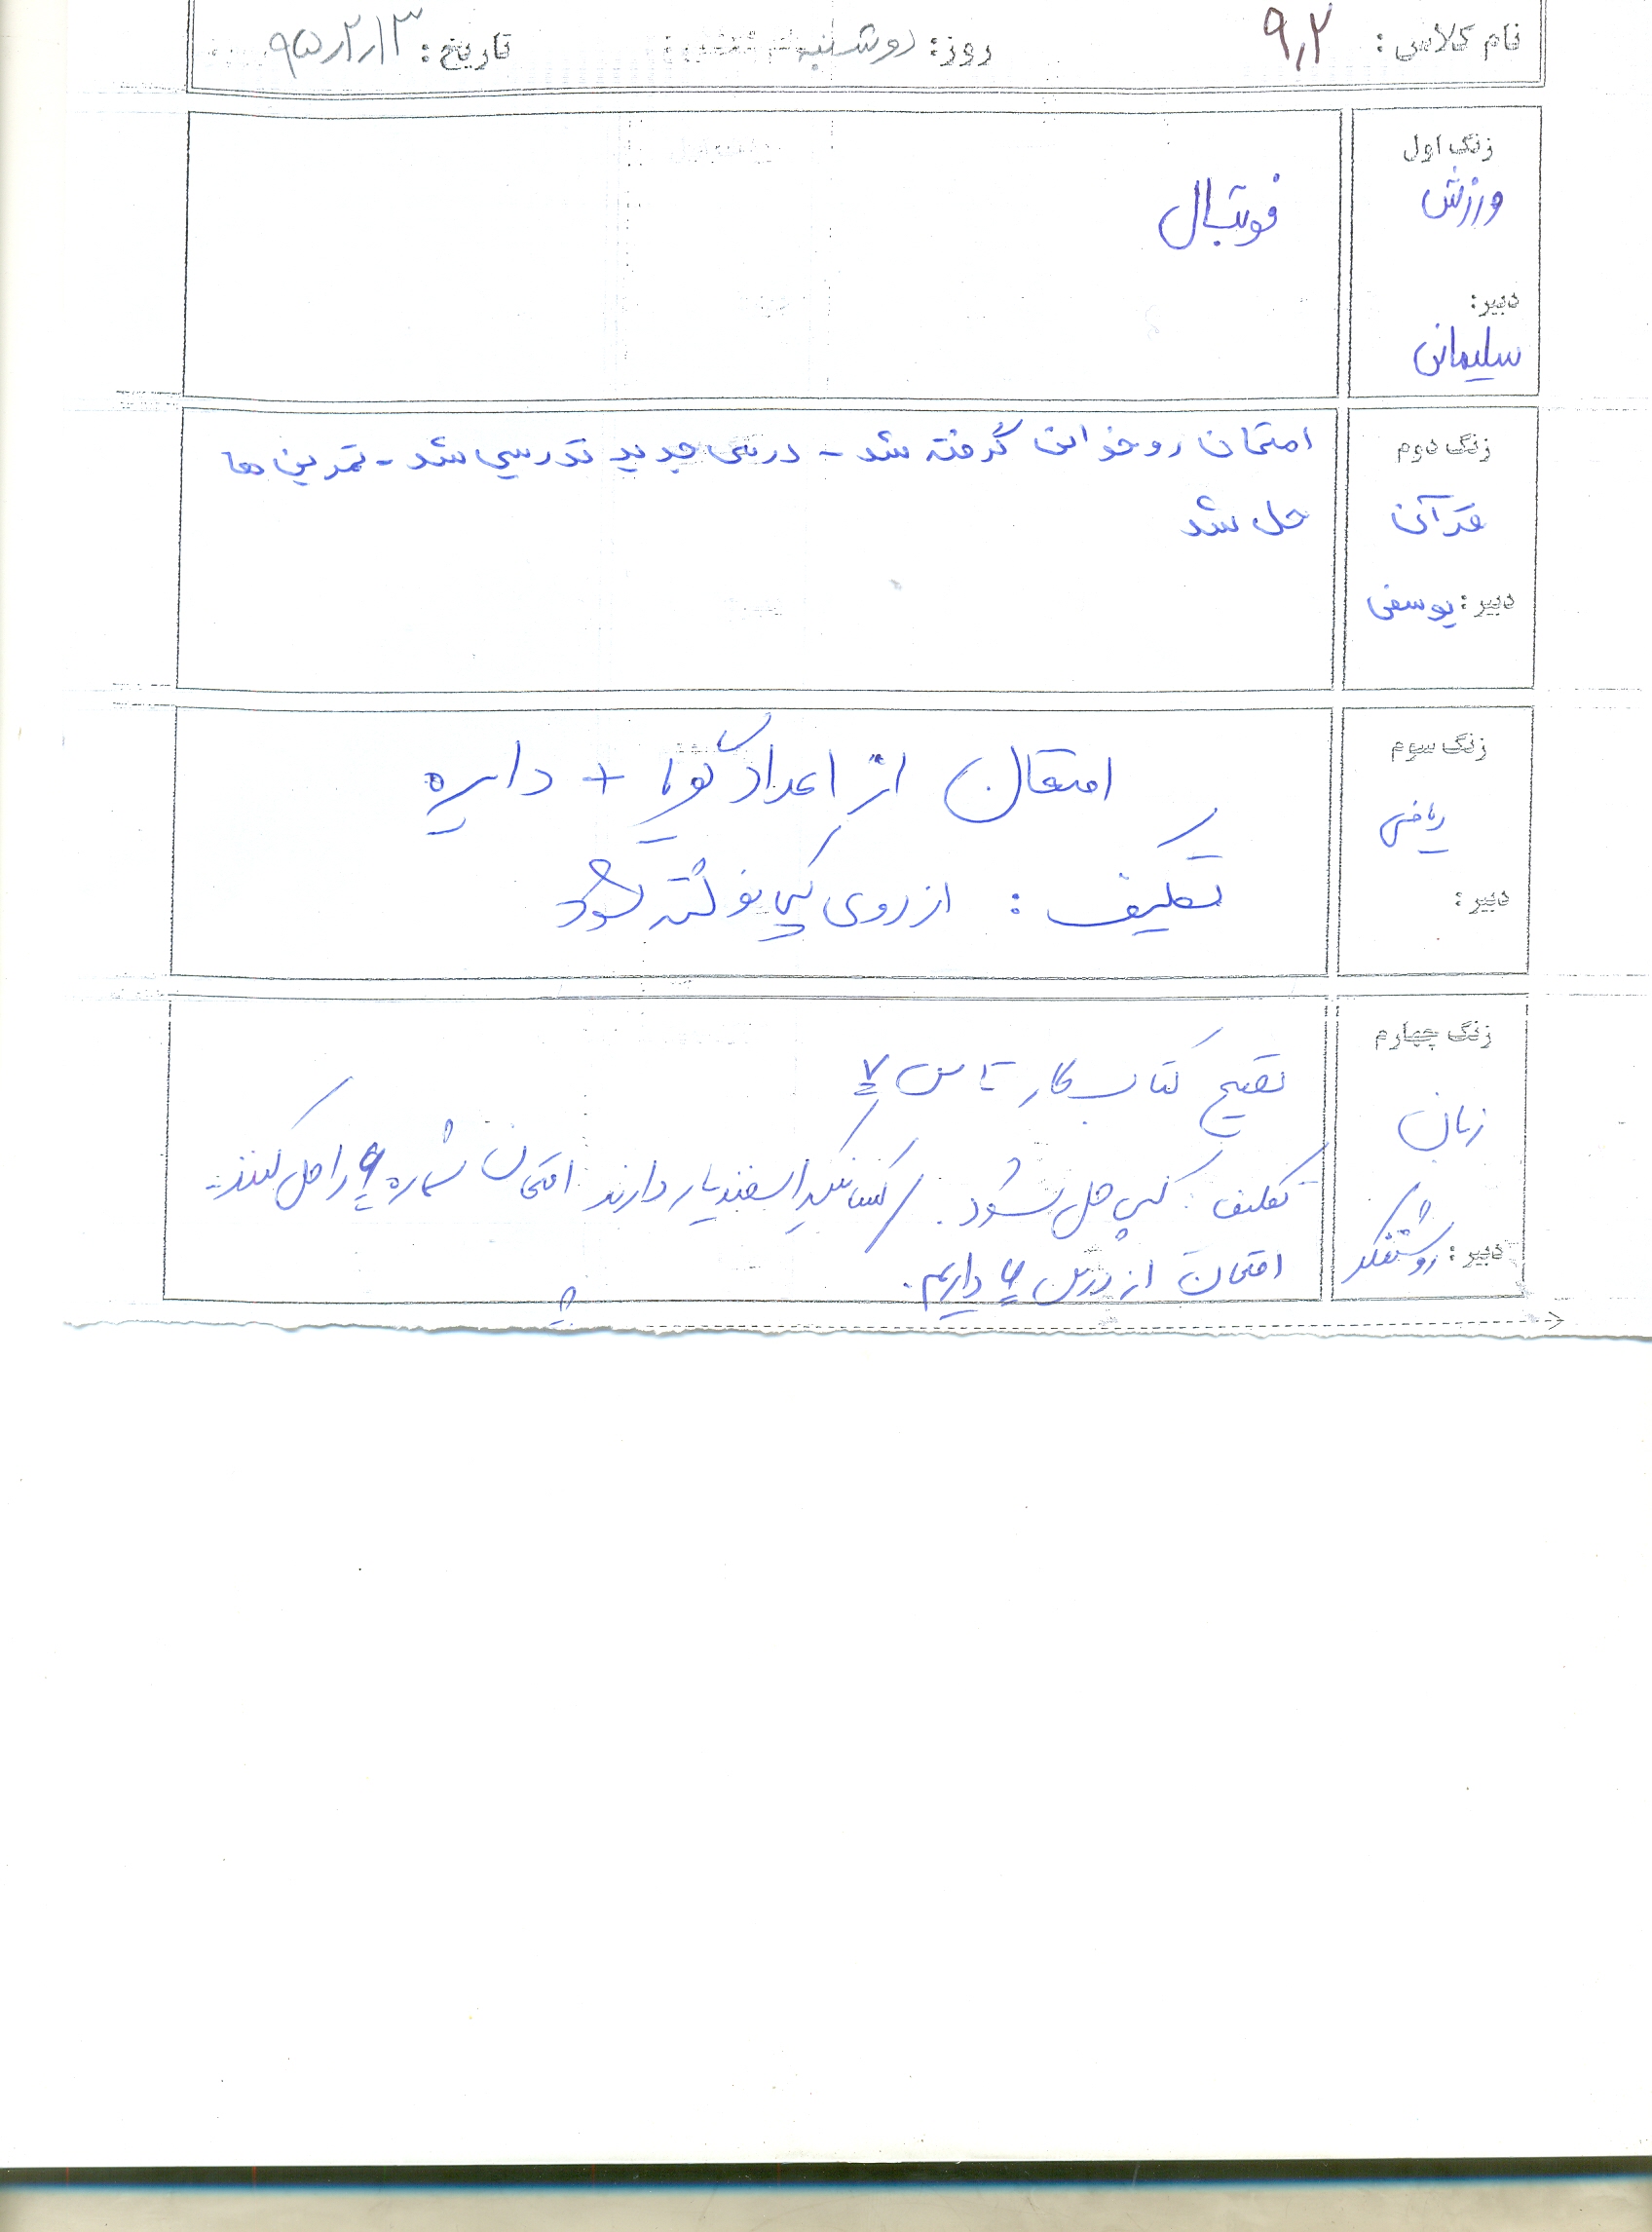 نام کلاس: ۹٫۲ روز: دوشنبه تاریخ: ۹۵٫۲٫۱۳
زنگ اول
ورزش
فوتبال
دبیر:
سلیمانی
زنگ دوم
امتحان روخوانی گرفته شد - درس جدید تدریس شد - تمرین ها
حل شد
قرآن
دبیر: یوسفی
زنگ سوم
امتحان از اعداد گویا + دایره
ریاضی
تکلیف: از روی کپی نوشته شود
دبیر:
زنگ چهارم
تصحیح کتاب کار تا س ۷
زبان
تکلیف: کپی حل شود. کسانیکه اسفندیار دارند امتحان شماره ۶ را حل کنند.
دبیر: روشنفکر
امتحان از درس ۶ داریم.